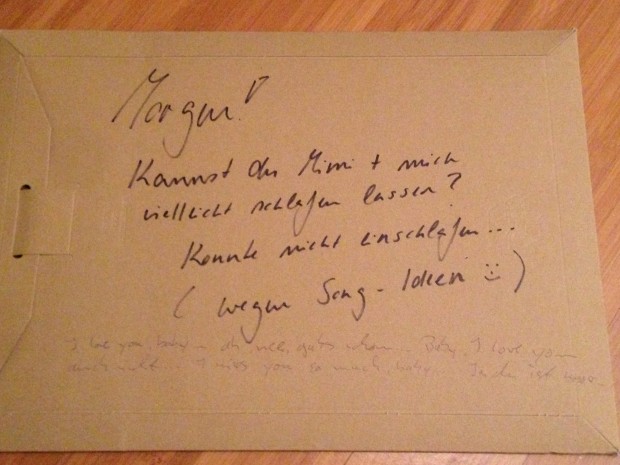 Morgen!
Kannst du Mimi + mich
vielleicht schlafen lassen?
Konnte nicht einschlafen...
( wegen Song - Ideen :) )
I love you, baby oh nee, gabs schon. Baby, I love you
auch nicht... I miss you so much, baby